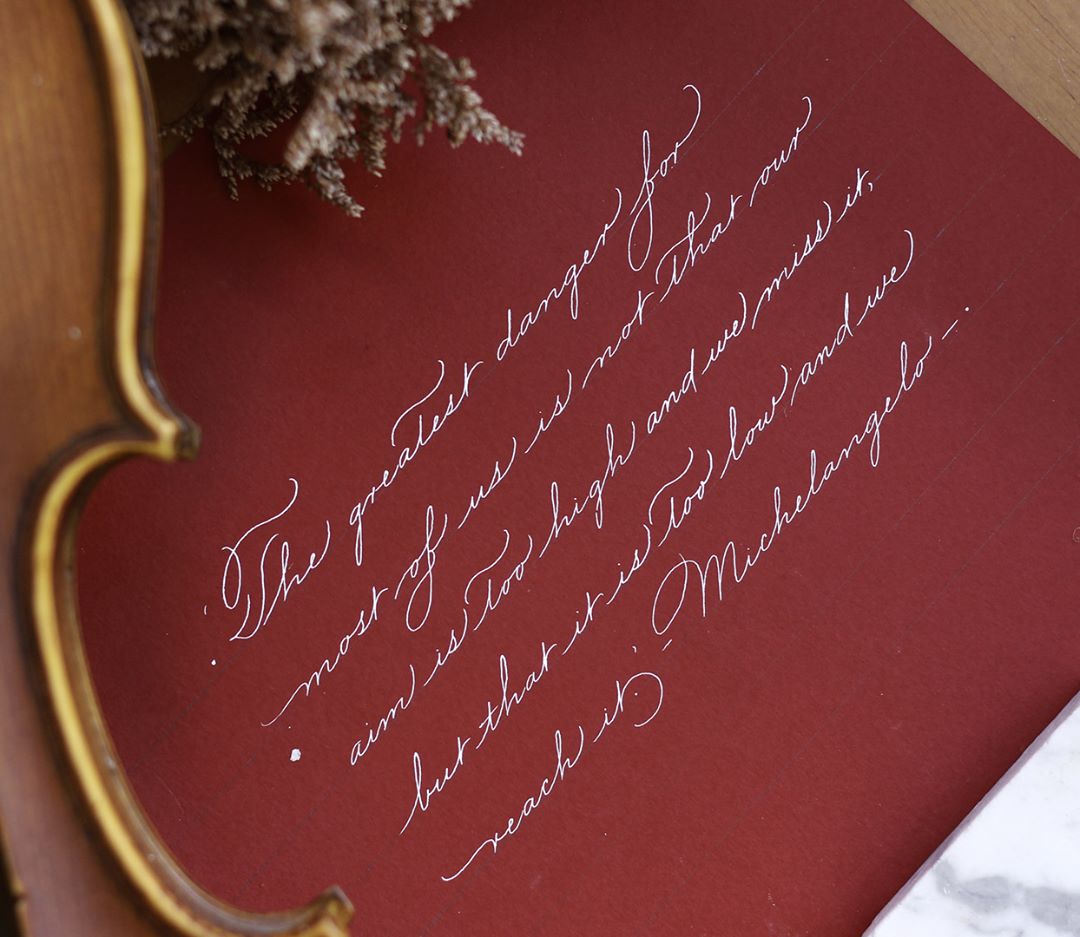 The greatest danger for
most of us is not that our
aim is too high and we miss it,
but that it is too low and we
reach it. - Michelangelo -.